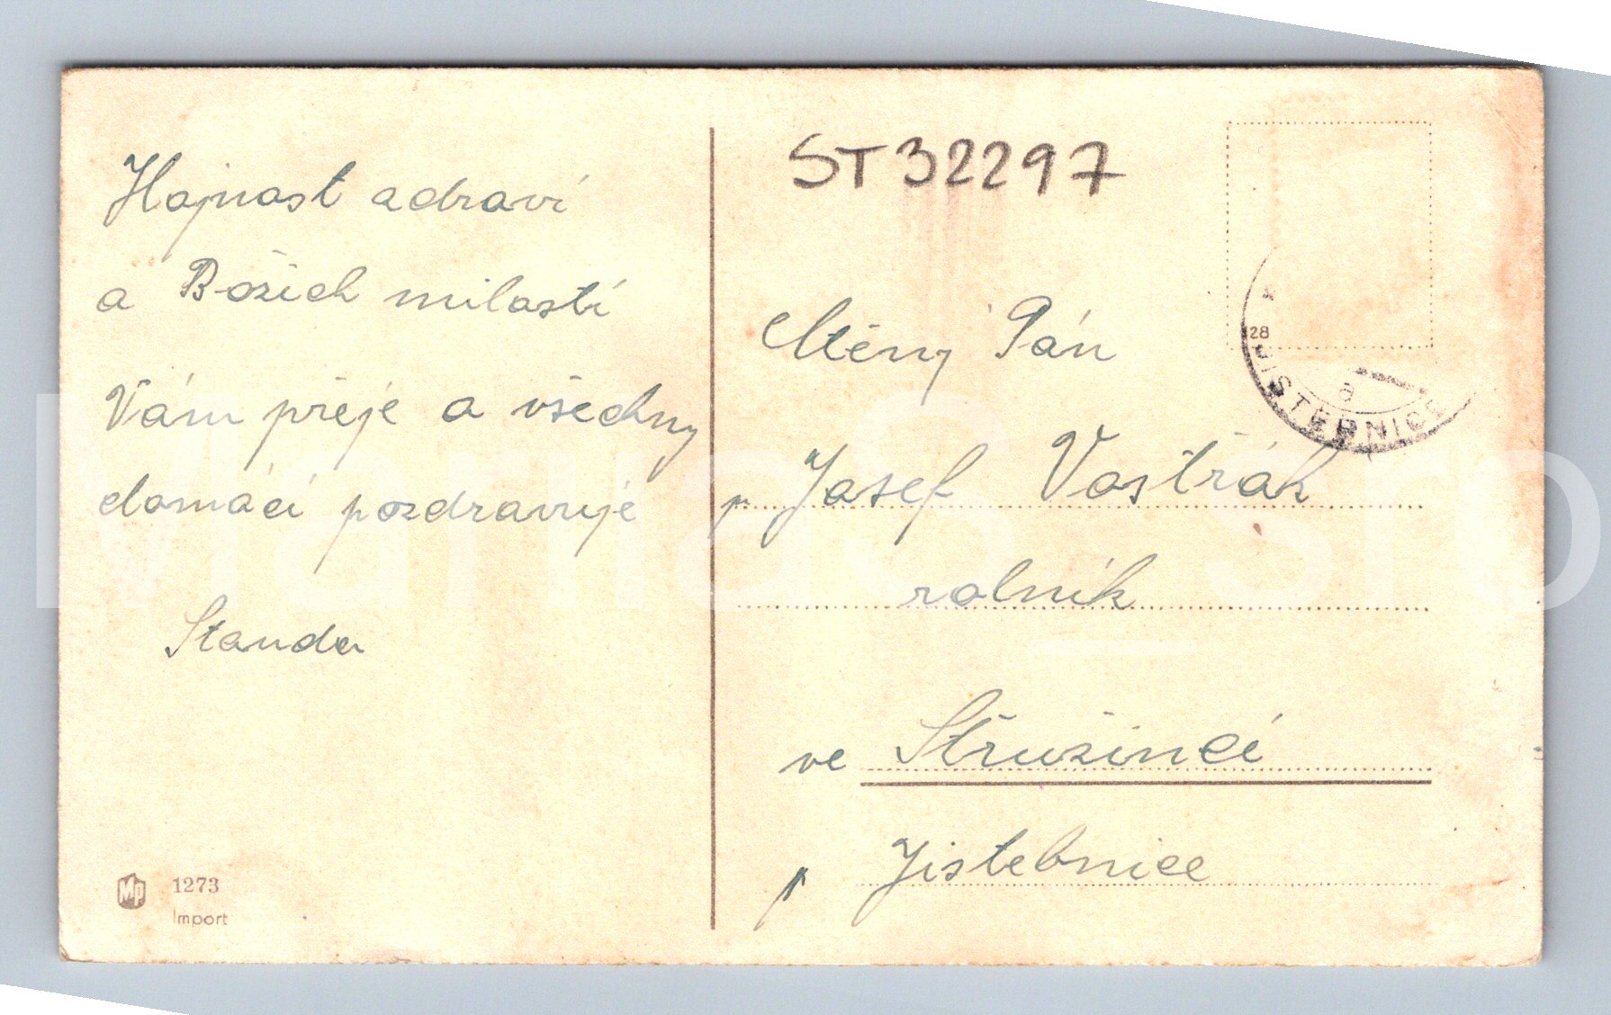 Hojnost zdraví
a Božích milostí
Vám přeje a všechny
domácí pozdravuje
Standa
1273
Import
ST32297
Ctěný Pán
p. Josef Vostřák
rolník
ve Stružinci
p Jistebnice
28
a
JISTEBNICE